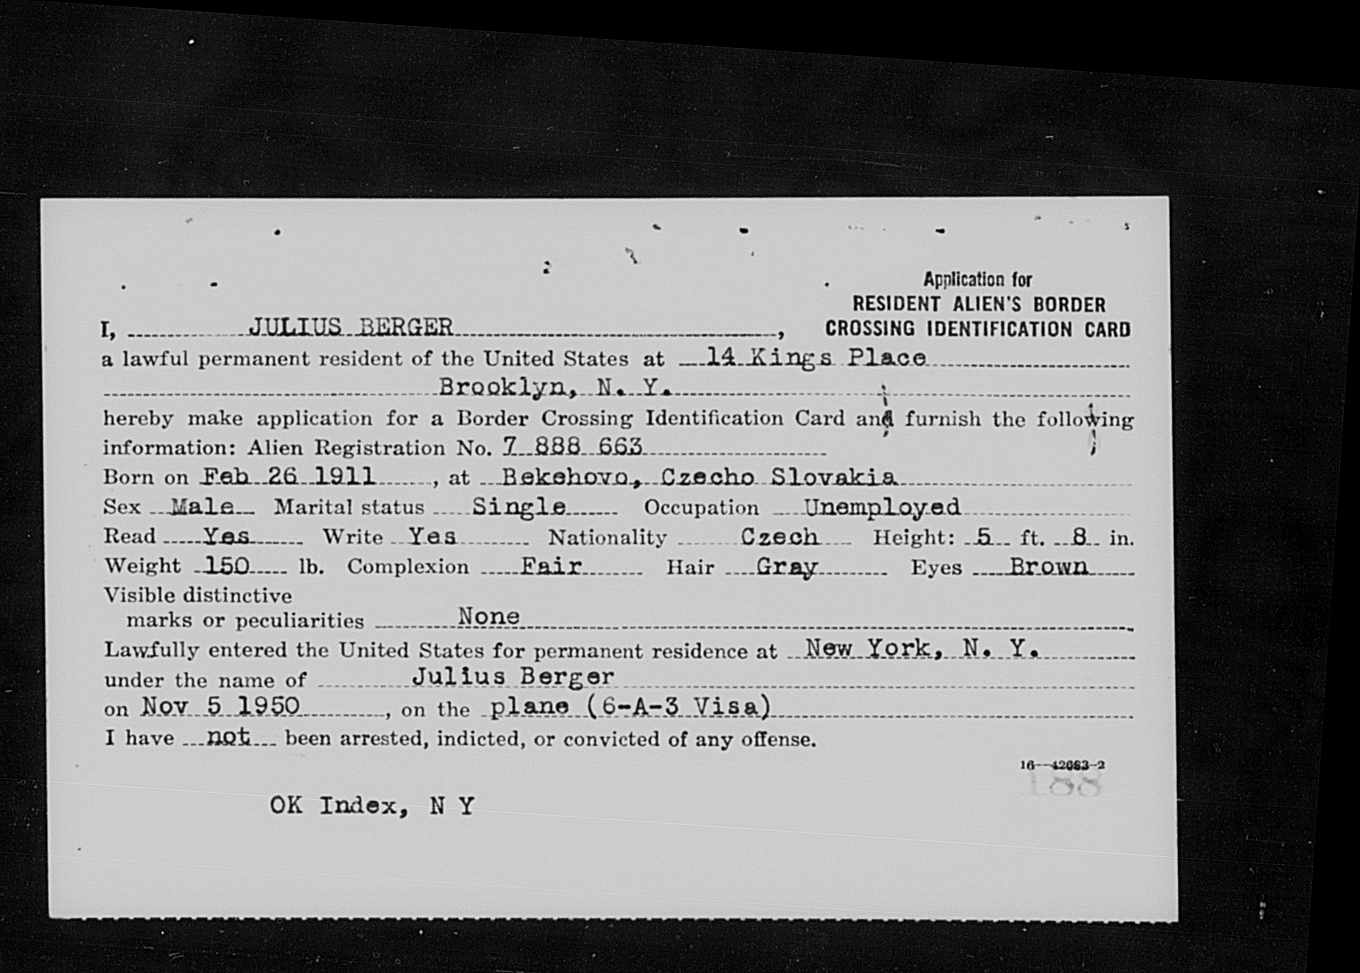 Application for
RESIDENT ALIEN'S BORDER
CROSSING IDENTIFICATION CARD
I, JULIUS BERGER,
a lawful permanent resident of the United States at 14 Kings Place
Brooklyn, N. Y.
hereby make application for a Border Crossing Identification Card and furnish the following
information: Alien Registration No. 7 888 663
Born on Feb 26 1911, at Bekehovo, Czecho Slovakia
Sex Male Marital status Single Occupation Unemployed
Read Yes Write Yes Nationality Czech Height: 5 ft. 8 in.
Weight 150 lb. Complexion Fair Hair Gray Eyes Brown
Visible distinctive
marks or peculiarities None
Lawfully entered the United States for permanent residence at New York, N. Y.
under the name of Julius Berger
on Nov 5 1950, on the plane (6-A-3 Visa)
I have not been arrested, indicted, or convicted of any offense.
16—42663-2
188
OK Index, N Y